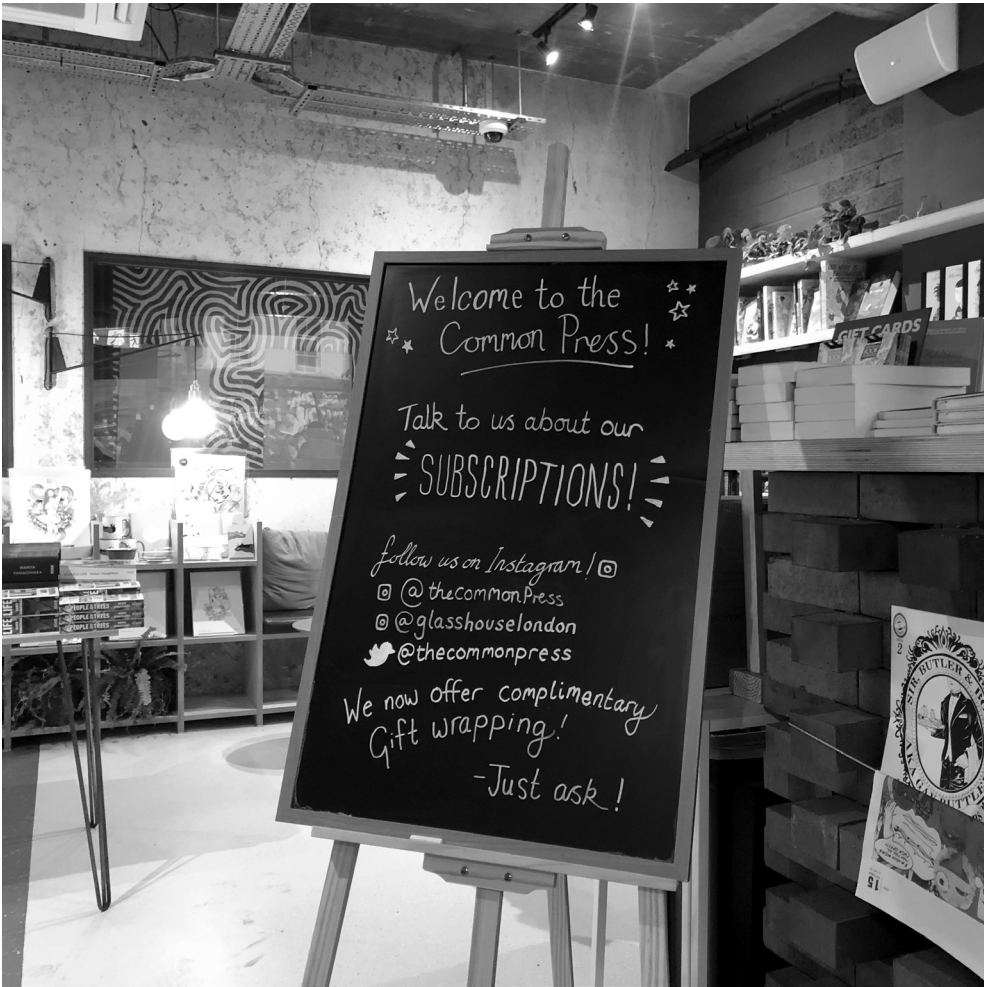 Welcome to the
Common Press!
Talk to us about our
SUBSCRIPTIONS!
follow us on Instagram!
@thecommonPress
@glasshouselondon
@thecommonpress
We now offer complimentary
Gift wrapping!
-Just ask!
GIFT CARDS
PEOPLE TREES
PEOPLE TREES
SIR BUTLER &
15